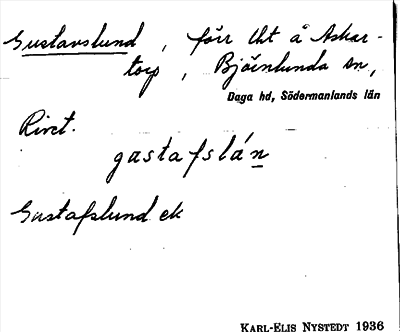 Gustavslund, förr tht å Askar-
torp, Björnlunda sn,
Daga hd, Södermanlands län
Rivet.
gastafslán
Gustafslund ek
KARL-ELIS NYSTEDT 1936